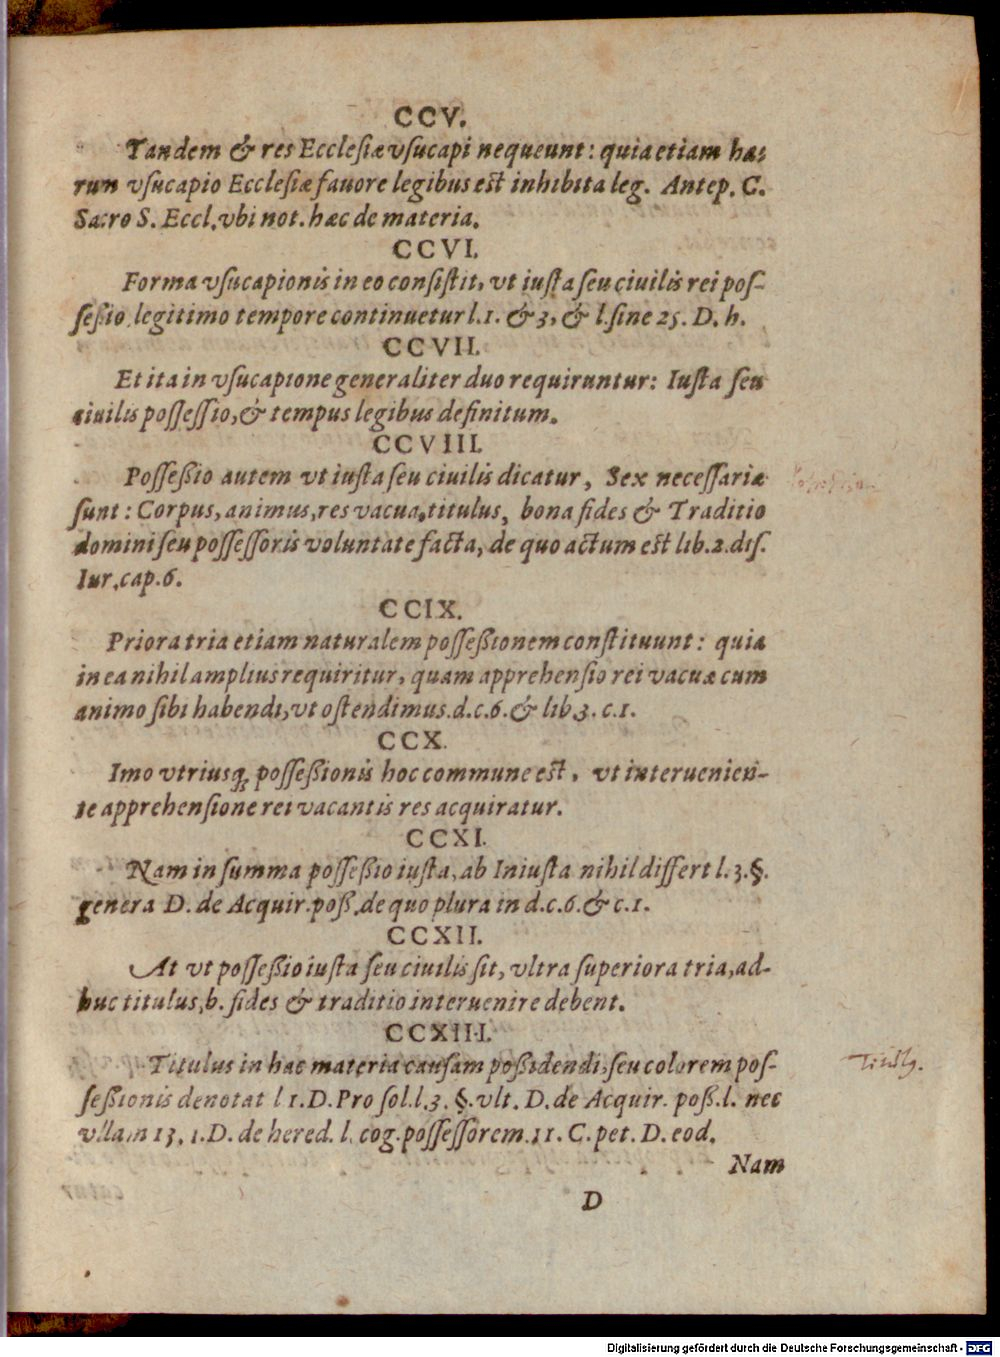 CCV.
Tandem & res Ecclesiæ vsucapi nequeunt: quia etiam ha:
rum vsucapio Ecclesiæ fauore legibus est inhibita leg. Antep. C.
Sacro S. Eccl. vbi not. hæc de materia.
CCVI.
Forma vsucapionis in eo consistit, vt iusta seu ciuilis rei pos-
seßio legitimo tempore continuetur l. 1. & 3, & l. sine 25. D. h.
CCVII.
Et ita in vsucapione generaliter duo requiruntur: Iusta seu
ciuilis possessio, & tempus legibus definitum.
CCVIII.
Posseßio autem vt iusta seu ciuilis dicatur, Sex necessariæ
sunt: Corpus, animus, res vacua, titulus, bona fides & Traditio
domini seu possessoris voluntate facta, de quo actum est lib. 2. dis.
Iur. cap. 6.
CCIX.
Priora tria etiam naturalem posseßionem constituunt: quia
in ea nihil amplius requiritur, quam apprehensio rei vacuæ cum
animo sibi habendi, vt ostendimus. d. c. 6. & lib. 3. c. 1.
CCX.
Imo vtriusq; posseßionis hoc commune est, vt interuenien-
te apprehensione rei vacantis res acquiratur.
CCXI.
Nam in summa posseßio iusta, ab Iniusta nihil differt l. 3. §.
genera D. de Acquir. poß. de quo plura in d. c. 6. & c. 1.
CCXII.
At vt posseßio iusta seu ciuilis sit, vltra superiora tria, ad-
huc titulus, b. fides & traditio interuenire debent.
CCXIII.
Titulus in hac materia causam poßidendi, seu colorem pos-
seßionis denotat l 1. D. Pro sol. l. 3. §. vlt. D. de Acquir. poß. l. nec
vllam 13. 1. D. de hered. l. cog. possessorem. 11. C. pet. D. eod.
Titulus.
Nam
D
Digitalisierung gefördert durch die Deutsche Forschungsgemeinschaft - DFG